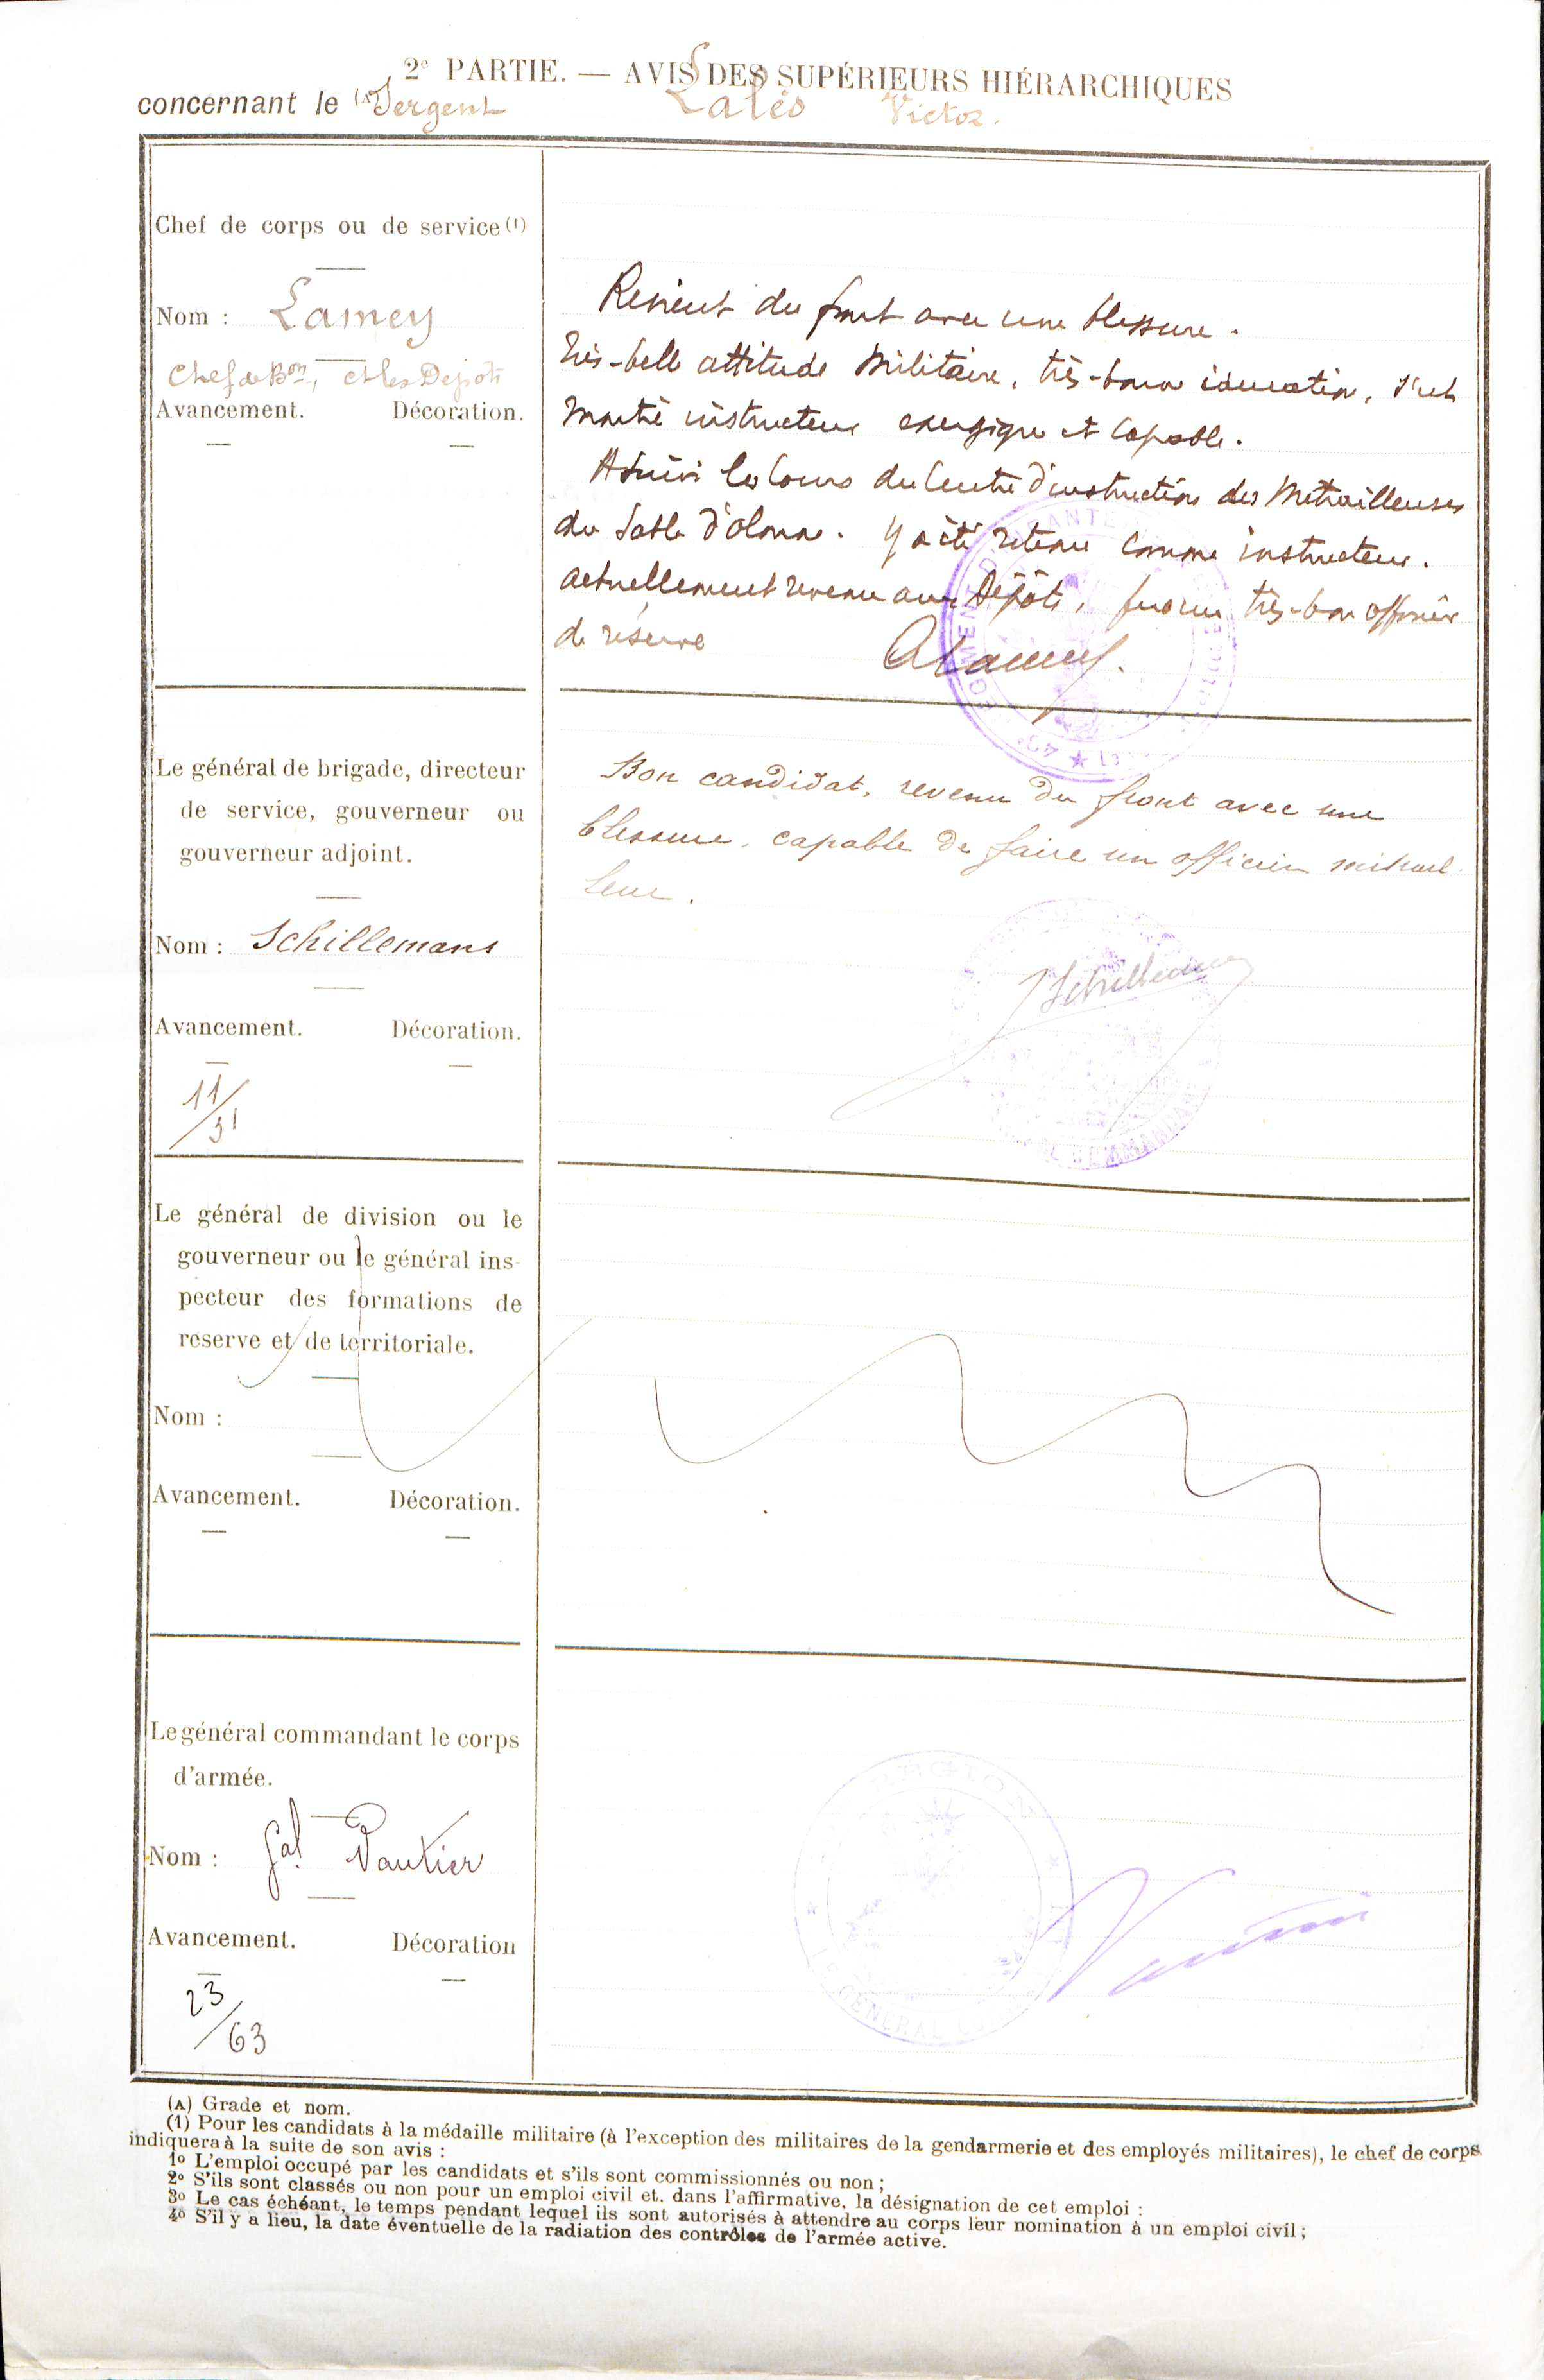 2e PARTIE. — AVIS DES SUPÉRIEURS HIÉRARCHIQUES
concernant le (A) Sergent Lalès Victor.
Chef de corps ou de service (1)
Nom : Lamey
Chef de Bon, ct les Dépôts
Avancement. Décoration.
Revient du front avec une blessure.
Très-belle attitude militaire, très-bonne éducation, s'est
montré instructeur énergique et capable.
A suivi les cours du Centre d'instruction des Mitrailleuses
du Sable d'Olonne. Y a été retenu comme instructeur.
Actuellement revenu aux Dépôts, fera un très-bon officier
de réserve
ALamey.
RÉGIMENT D'INFANTERIE
Le général de brigade, directeur
de service, gouverneur ou
gouverneur adjoint.
Nom : Schillemans
Avancement. Décoration.
11/31
Bon candidat, revenu du front avec une
blessure, capable de faire un officier mitrail-
leur.
Schillemans
COMMANDANT
Le général de division ou le
gouverneur ou le général ins-
pecteur des formations de
reserve et de territoriale.
Nom :
Avancement. Décoration.
Le général commandant le corps
d'armée.
Nom : Gal Vautier
Avancement. Décoration
23/63
RÉGION
LE GÉNÉRAL
Vautier
(A) Grade et nom.
(1) Pour les candidats à la médaille militaire (à l'exception des militaires de la gendarmerie et des employés militaires), le chef de corps
indiquera à la suite de son avis :
1o L'emploi occupé par les candidats et s'ils sont commissionnés ou non ;
2o S'ils sont classés ou non pour un emploi civil et, dans l'affirmative, la désignation de cet emploi :
3o Le cas échéant, le temps pendant lequel ils sont autorisés à attendre au corps leur nomination à un emploi civil ;
4o S'il y a lieu, la date éventuelle de la radiation des contrôles de l'armée active.